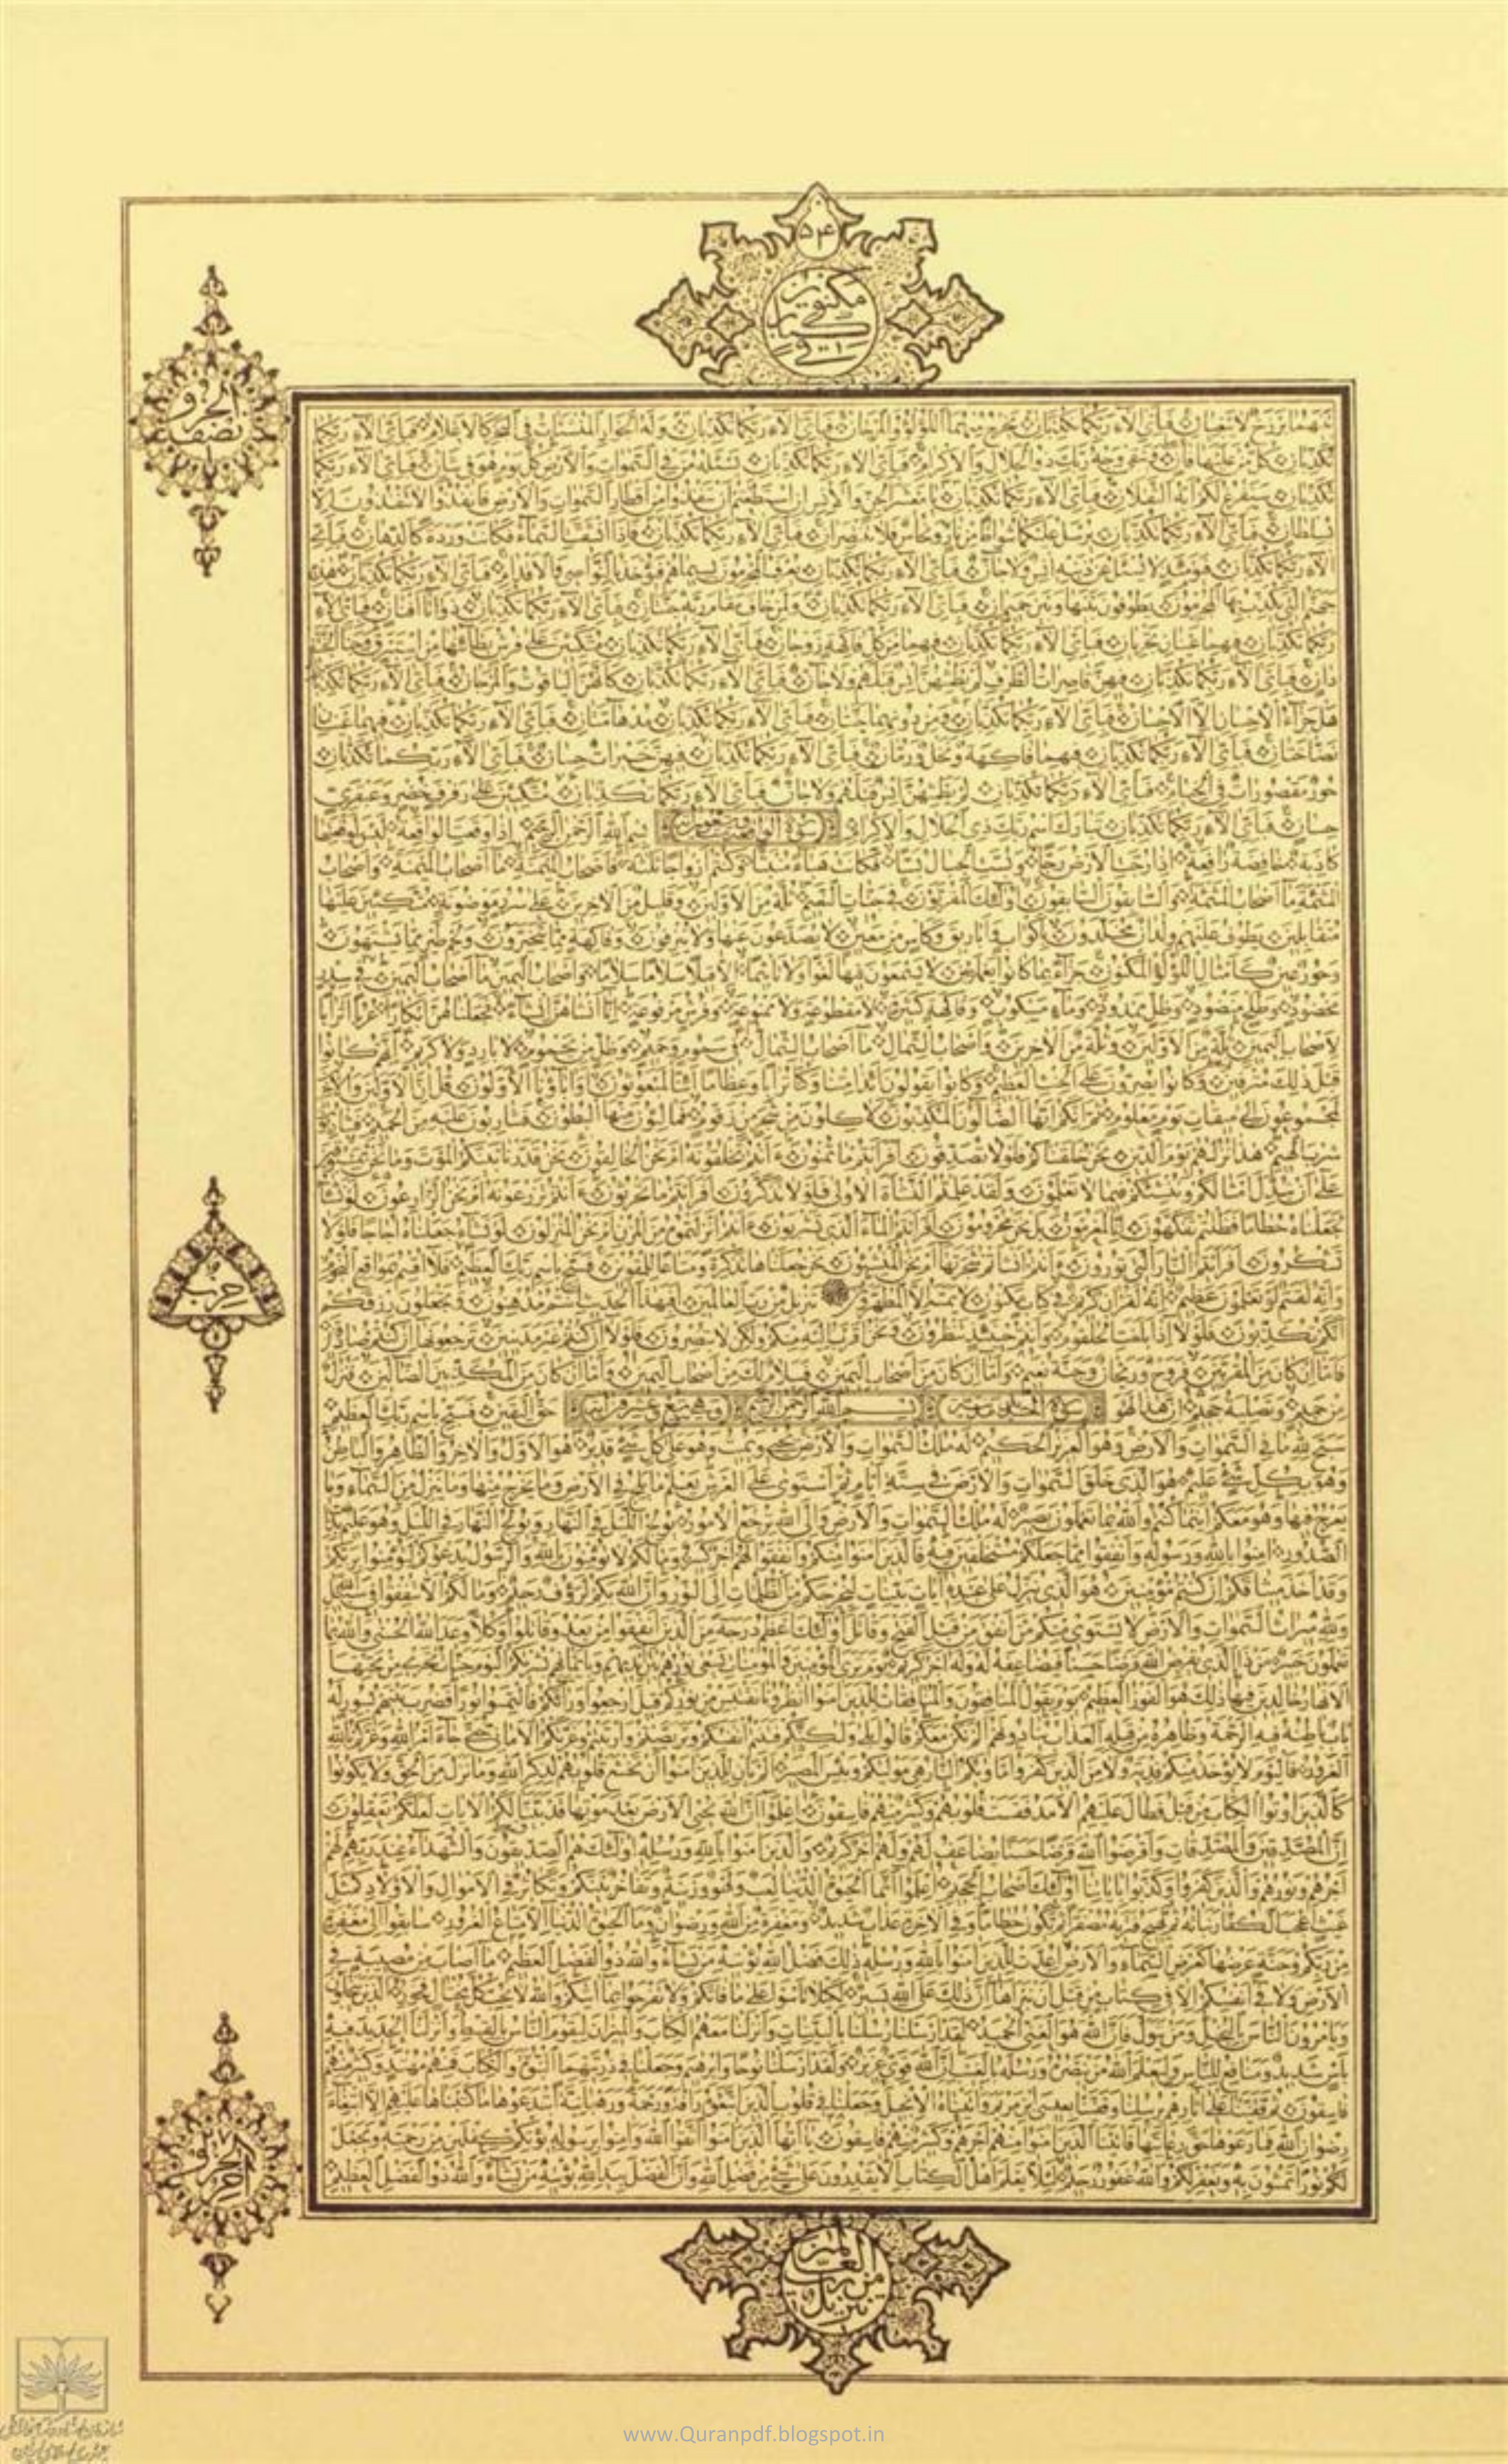 ۵۴
في كتاب مكنون
بينهما برزخ لا يبغيان فبأي آلاء ربكما تكذبان يخرج منهما اللؤلؤ والمرجان فبأي آلاء ربكما تكذبان وله الجوار المنشئات في البحر كالأعلام فبأي آلاء ربكما
تكذبان كل من عليها فان ويبقى وجه ربك ذو الجلال والإكرام فبأي آلاء ربكما تكذبان يسئله من في السموات والأرض كل يوم هو في شأن فبأي آلاء ربكما
تكذبان سنفرغ لكم أيه الثقلان فبأي آلاء ربكما تكذبان يا معشر الجن والإنس إن استطعتم أن تنفذوا من أقطار السموات والأرض فانفذوا لا تنفذون إلا
بسلطان فبأي آلاء ربكما تكذبان يرسل عليكما شواظ من نار ونحاس فلا تنتصران فبأي آلاء ربكما تكذبان فإذا انشقت السماء فكانت وردة كالدهان فبأي
آلاء ربكما تكذبان فيومئذ لا يسئل عن ذنبه إنس ولا جان فبأي آلاء ربكما تكذبان يعرف المجرمون بسيماهم فيؤخذ بالنواصي والأقدام فبأي آلاء ربكما تكذبان هذه
جهنم التي يكذب بها المجرمون يطوفون بينها وبين حميم آن فبأي آلاء ربكما تكذبان ولمن خاف مقام ربه جنتان فبأي آلاء ربكما تكذبان ذواتا أفنان فبأي آلاء
ربكما تكذبان فيهما عينان تجريان فبأي آلاء ربكما تكذبان فيهما من كل فاكهة زوجان فبأي آلاء ربكما تكذبان متكئين على فرش بطائنها من إستبرق وجنا الجنتين
دان فبأي آلاء ربكما تكذبان فيهن قاصرات الطرف لم يطمثهن إنس قبلهم ولا جان فبأي آلاء ربكما تكذبان كأنهن الياقوت والمرجان فبأي آلاء ربكما تكذبان
هل جزاء الإحسان إلا الإحسان فبأي آلاء ربكما تكذبان ومن دونهما جنتان فبأي آلاء ربكما تكذبان مدهامتان فبأي آلاء ربكما تكذبان فيهما عينان
نضاختان فبأي آلاء ربكما تكذبان فيهما فاكهة ونخل ورمان فبأي آلاء ربكما تكذبان فيهن خيرات حسان فبأي آلاء ربكما تكذبان
حور مقصورات في الخيام فبأي آلاء ربكما تكذبان لم يطمثهن إنس قبلهم ولا جان فبأي آلاء ربكما تكذبان متكئين على رفرف خضر وعبقري
حسان فبأي آلاء ربكما تكذبان تبارك اسم ربك ذي الجلال والإكرام سورة الواقعة بسم الله الرحمن الرحيم إذا وقعت الواقعة ليس لوقعتها
كاذبة خافضة رافعة إذا رجت الأرض رجا وبست الجبال بسا فكانت هباء منبثا وكنتم أزواجا ثلثة فأصحاب الميمنة ما أصحاب الميمنة وأصحاب
المشئمة ما أصحاب المشئمة والسابقون السابقون أولئك المقربون في جنات النعيم ثلة من الأولين وقليل من الآخرين على سرر موضونة متكئين عليها
متقابلين يطوف عليهم ولدان مخلدون بأكواب وأباريق وكأس من معين لا يصدعون عنها ولا ينزفون وفاكهة مما يتخيرون ولحم طير مما يشتهون
وحور عين كأمثال اللؤلؤ المكنون جزاء بما كانوا يعملون لا يسمعون فيها لغوا ولا تأثيما إلا قيلا سلاما سلاما وأصحاب اليمين ما أصحاب اليمين في سدر
مخضود وطلح منضود وظل ممدود وماء مسكوب وفاكهة كثيرة لا مقطوعة ولا ممنوعة وفرش مرفوعة إنا أنشأناهن إنشاء فجعلناهن أبكارا عربا أترابا
لأصحاب اليمين ثلة من الأولين وثلة من الآخرين وأصحاب الشمال ما أصحاب الشمال في سموم وحميم وظل من يحموم لا بارد ولا كريم إنهم كانوا
قبل ذلك مترفين وكانوا يصرون على الحنث العظيم وكانوا يقولون أئذا متنا وكنا ترابا وعظاما أئنا لمبعوثون أو آباؤنا الأولون قل إن الأولين والآخرين
لمجموعون إلى ميقات يوم معلوم ثم إنكم أيها الضالون المكذبون لآكلون من شجر من زقوم فمالئون منها البطون فشاربون عليه من الحميم فشاربون
شرب الهيم هذا نزلهم يوم الدين نحن خلقناكم فلولا تصدقون أفرأيتم ما تمنون ءأنتم تخلقونه أم نحن الخالقون نحن قدرنا بينكم الموت وما نحن بمسبوقين
على أن نبدل أمثالكم وننشئكم فيما لا تعلمون ولقد علمتم النشأة الأولى فلولا تذكرون أفرأيتم ما تحرثون ءأنتم تزرعونه أم نحن الزارعون لو نشاء
لجعلناه حطاما فظلتم تفكهون إنا لمغرمون بل نحن محرومون أفرأيتم الماء الذي تشربون ءأنتم أنزلتموه من المزن أم نحن المنزلون لو نشاء جعلناه أجاجا فلولا
تشكرون أفرأيتم النار التي تورون ءأنتم أنشأتم شجرتها أم نحن المنشئون نحن جعلناها تذكرة ومتاعا للمقوين فسبح باسم ربك العظيم فلا أقسم بمواقع النجوم
وإنه لقسم لو تعلمون عظيم إنه لقرآن كريم في كتاب مكنون لا يمسه إلا المطهرون تنزيل من رب العالمين أفبهذا الحديث أنتم مدهنون وتجعلون رزقكم
أنكم تكذبون فلولا إذا بلغت الحلقوم وأنتم حينئذ تنظرون ونحن أقرب إليه منكم ولكن لا تبصرون فلولا إن كنتم غير مدينين ترجعونها إن كنتم صادقين
فأما إن كان من المقربين فروح وريحان وجنة نعيم وأما إن كان من أصحاب اليمين فسلام لك من أصحاب اليمين وأما إن كان من المكذبين الضالين فنزل
من حميم وتصلية جحيم إن هذا لهو حق اليقين فسبح باسم ربك العظيم
سورة الحديد بسم الله الرحمن الرحيم
سبح لله ما في السموات والأرض وهو العزيز الحكيم له ملك السموات والأرض يحيي ويميت وهو على كل شيء قدير هو الأول والآخر والظاهر والباطن
وهو بكل شيء عليم هو الذي خلق السموات والأرض في ستة أيام ثم استوى على العرش يعلم ما يلج في الأرض وما يخرج منها وما ينزل من السماء وما
يعرج فيها وهو معكم أينما كنتم والله بما تعملون بصير له ملك السموات والأرض وإلى الله ترجع الأمور يولج الليل في النهار ويولج النهار في الليل وهو عليم بذات
الصدور آمنوا بالله ورسوله وأنفقوا مما جعلكم مستخلفين فيه فالذين آمنوا منكم وأنفقوا لهم أجر كبير وما لكم لا تؤمنون بالله والرسول يدعوكم لتؤمنوا بربكم
وقد أخذ ميثاقكم إن كنتم مؤمنين هو الذي ينزل على عبده آيات بينات ليخرجكم من الظلمات إلى النور وإن الله بكم لرؤوف رحيم وما لكم ألا تنفقوا في سبيل الله
ولله ميراث السموات والأرض لا يستوي منكم من أنفق من قبل الفتح وقاتل أولئك أعظم درجة من الذين أنفقوا من بعد وقاتلوا وكلا وعد الله الحسنى والله بما
تعملون خبير من ذا الذي يقرض الله قرضا حسنا فيضاعفه له وله أجر كريم يوم ترى المؤمنين والمؤمنات يسعى نورهم بين أيديهم وبأيمانهم بشراكم اليوم جنات تجري من تحتها
الأنهار خالدين فيها ذلك هو الفوز العظيم يوم يقول المنافقون والمنافقات للذين آمنوا انظرونا نقتبس من نوركم قيل ارجعوا وراءكم فالتمسوا نورا فضرب بينهم بسور له
باب باطنه فيه الرحمة وظاهره من قبله العذاب ينادونهم ألم نكن معكم قالوا بلى ولكنكم فتنتم أنفسكم وتربصتم وارتبتم وغرتكم الأماني حتى جاء أمر الله وغركم بالله
الغرور فاليوم لا يؤخذ منكم فدية ولا من الذين كفروا مأواكم النار هي موليكم وبئس المصير ألم يأن للذين آمنوا أن تخشع قلوبهم لذكر الله وما نزل من الحق ولا يكونوا
كالذين أوتوا الكتاب من قبل فطال عليهم الأمد فقست قلوبهم وكثير منهم فاسقون اعلموا أن الله يحيي الأرض بعد موتها قد بينا لكم الآيات لعلكم تعقلون
إن المصدقين والمصدقات وأقرضوا الله قرضا حسنا يضاعف لهم ولهم أجر كريم والذين آمنوا بالله ورسله أولئك هم الصديقون والشهداء عند ربهم لهم
أجرهم ونورهم والذين كفروا وكذبوا بآياتنا أولئك أصحاب الجحيم اعلموا أنما الحيوة الدنيا لعب ولهو وزينة وتفاخر بينكم وتكاثر في الأموال والأولاد كمثل
غيث أعجب الكفار نباته ثم يهيج فتريه مصفرا ثم يكون حطاما وفي الآخرة عذاب شديد ومغفرة من الله ورضوان وما الحيوة الدنيا إلا متاع الغرور سابقوا إلى مغفرة
من ربكم وجنة عرضها كعرض السماء والأرض أعدت للذين آمنوا بالله ورسله ذلك فضل الله يؤتيه من يشاء والله ذو الفضل العظيم ما أصاب من مصيبة في
الأرض ولا في أنفسكم إلا في كتاب من قبل أن نبرأها إن ذلك على الله يسير لكيلا تأسوا على ما فاتكم ولا تفرحوا بما آتيكم والله لا يحب كل مختال فخور الذين يبخلون
ويأمرون الناس بالبخل ومن يتول فإن الله هو الغني الحميد لقد أرسلنا رسلنا بالبينات وأنزلنا معهم الكتاب والميزان ليقوم الناس بالقسط وأنزلنا الحديد فيه
بأس شديد ومنافع للناس وليعلم الله من ينصره ورسله بالغيب إن الله قوي عزيز ولقد أرسلنا نوحا وإبرهيم وجعلنا في ذريتهما النبوة والكتاب فمنهم مهتد وكثير منهم
فاسقون ثم قفينا على آثارهم برسلنا وقفينا بعيسى ابن مريم وآتيناه الإنجيل وجعلنا في قلوب الذين اتبعوه رأفة ورحمة ورهبانية ابتدعوها ما كتبناها عليهم إلا ابتغاء
رضوان الله فما رعوها حق رعايتها فآتينا الذين آمنوا منهم أجرهم وكثير منهم فاسقون يا أيها الذين آمنوا اتقوا الله وآمنوا برسوله يؤتكم كفلين من رحمته ويجعل
لكم نورا تمشون به ويغفر لكم والله غفور رحيم لئلا يعلم أهل الكتاب ألا يقدرون على شيء من فضل الله وأن الفضل بيد الله يؤتيه من يشاء والله ذو الفضل العظيم
نصف الجزو
حزب
تنزيل من رب العالمين
www.Quranpdf.blogspot.in